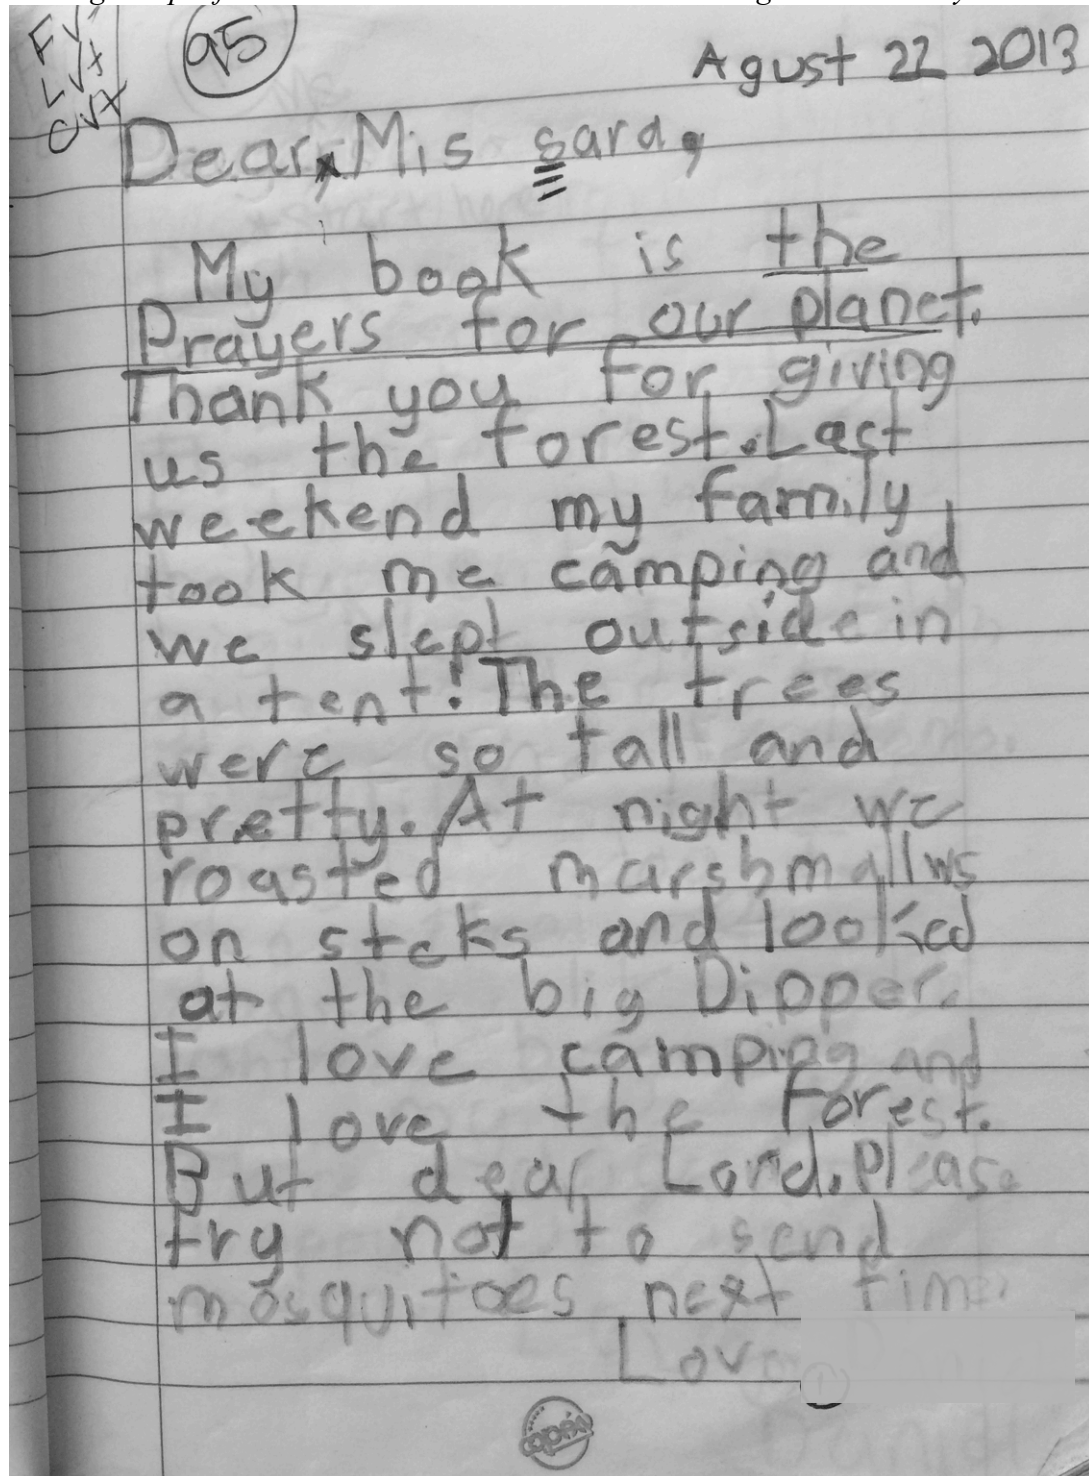 95
Agust 22 2013
Dear, Mis sara,
My book is the
Prayers for our planet.
Thank you for giving
us the forest. Last
weekend my family
took me camping and
we slept outside in
a tent! The trees
were so tall and
pretty. At night we
roasted marshmallws
on stcks and looked
at the big Dipper.
I love camping and
I love the forest.
But dear Lord, please
try not to send
mosquitoes next time
Love